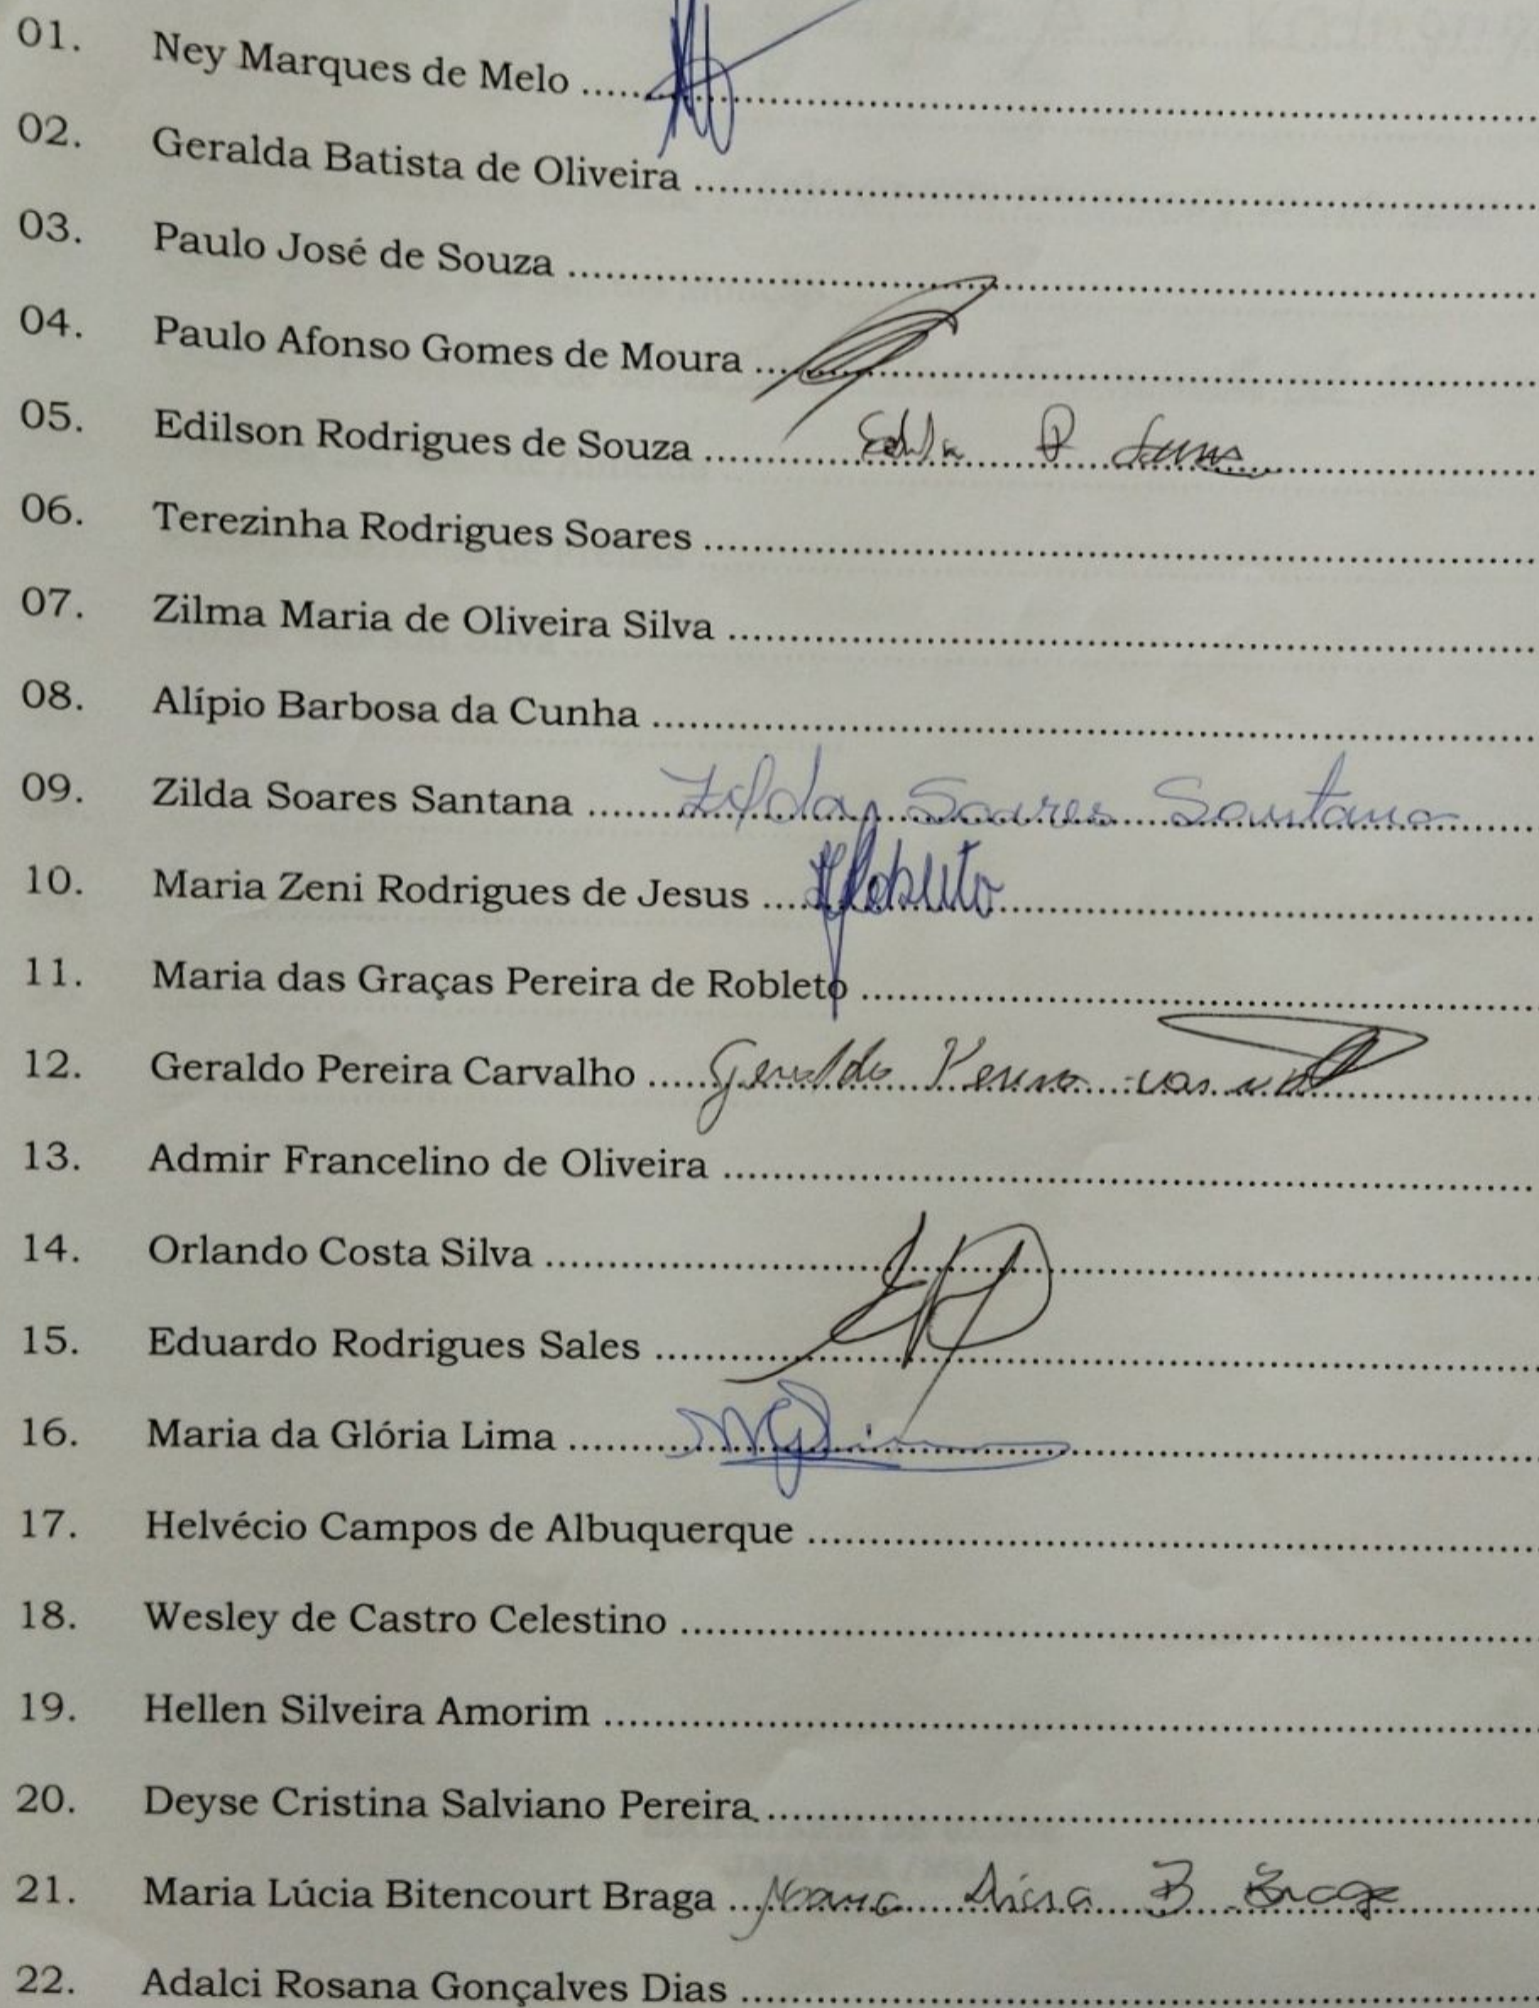 01. Ney Marques de Melo ..........
02. Geralda Batista de Oliveira ..........
03. Paulo José de Souza ..........
04. Paulo Afonso Gomes de Moura ..........
05. Edilson Rodrigues de Souza ..........
06. Terezinha Rodrigues Soares ..........
07. Zilma Maria de Oliveira Silva ..........
08. Alípio Barbosa da Cunha ..........
09. Zilda Soares Santana .......... Zilda Soares Santana
10. Maria Zeni Rodrigues de Jesus .......... Robleto
11. Maria das Graças Pereira de Robleto ..........
12. Geraldo Pereira Carvalho .......... Geraldo
13. Admir Francelino de Oliveira ..........
14. Orlando Costa Silva ..........
15. Eduardo Rodrigues Sales ..........
16. Maria da Glória Lima ..........
17. Helvécio Campos de Albuquerque ..........
18. Wesley de Castro Celestino ..........
19. Hellen Silveira Amorim ..........
20. Deyse Cristina Salviano Pereira ..........
21. Maria Lúcia Bitencourt Braga .......... Maria Lúcia B Braga
22. Adalci Rosana Gonçalves Dias ..........